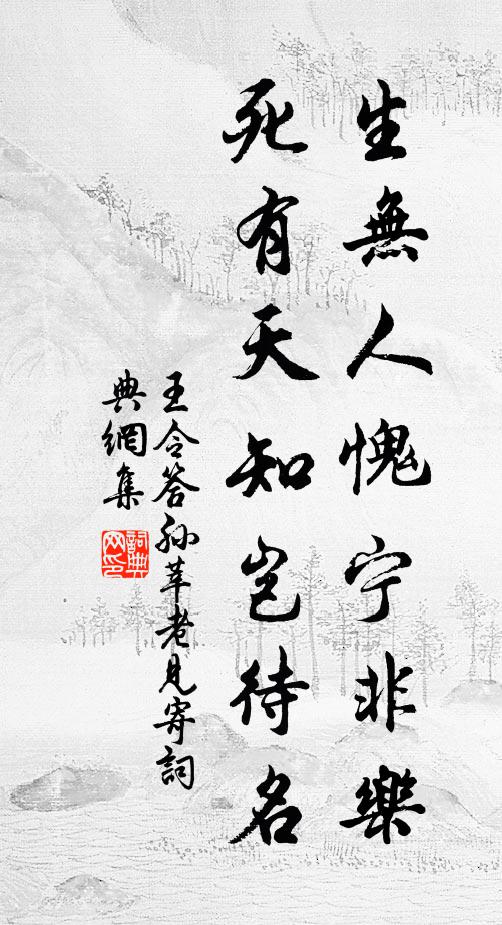 生無人愧宁非樂
死有天知岂待名
王令答孙莘老見寄詞
典網集
詞典网印